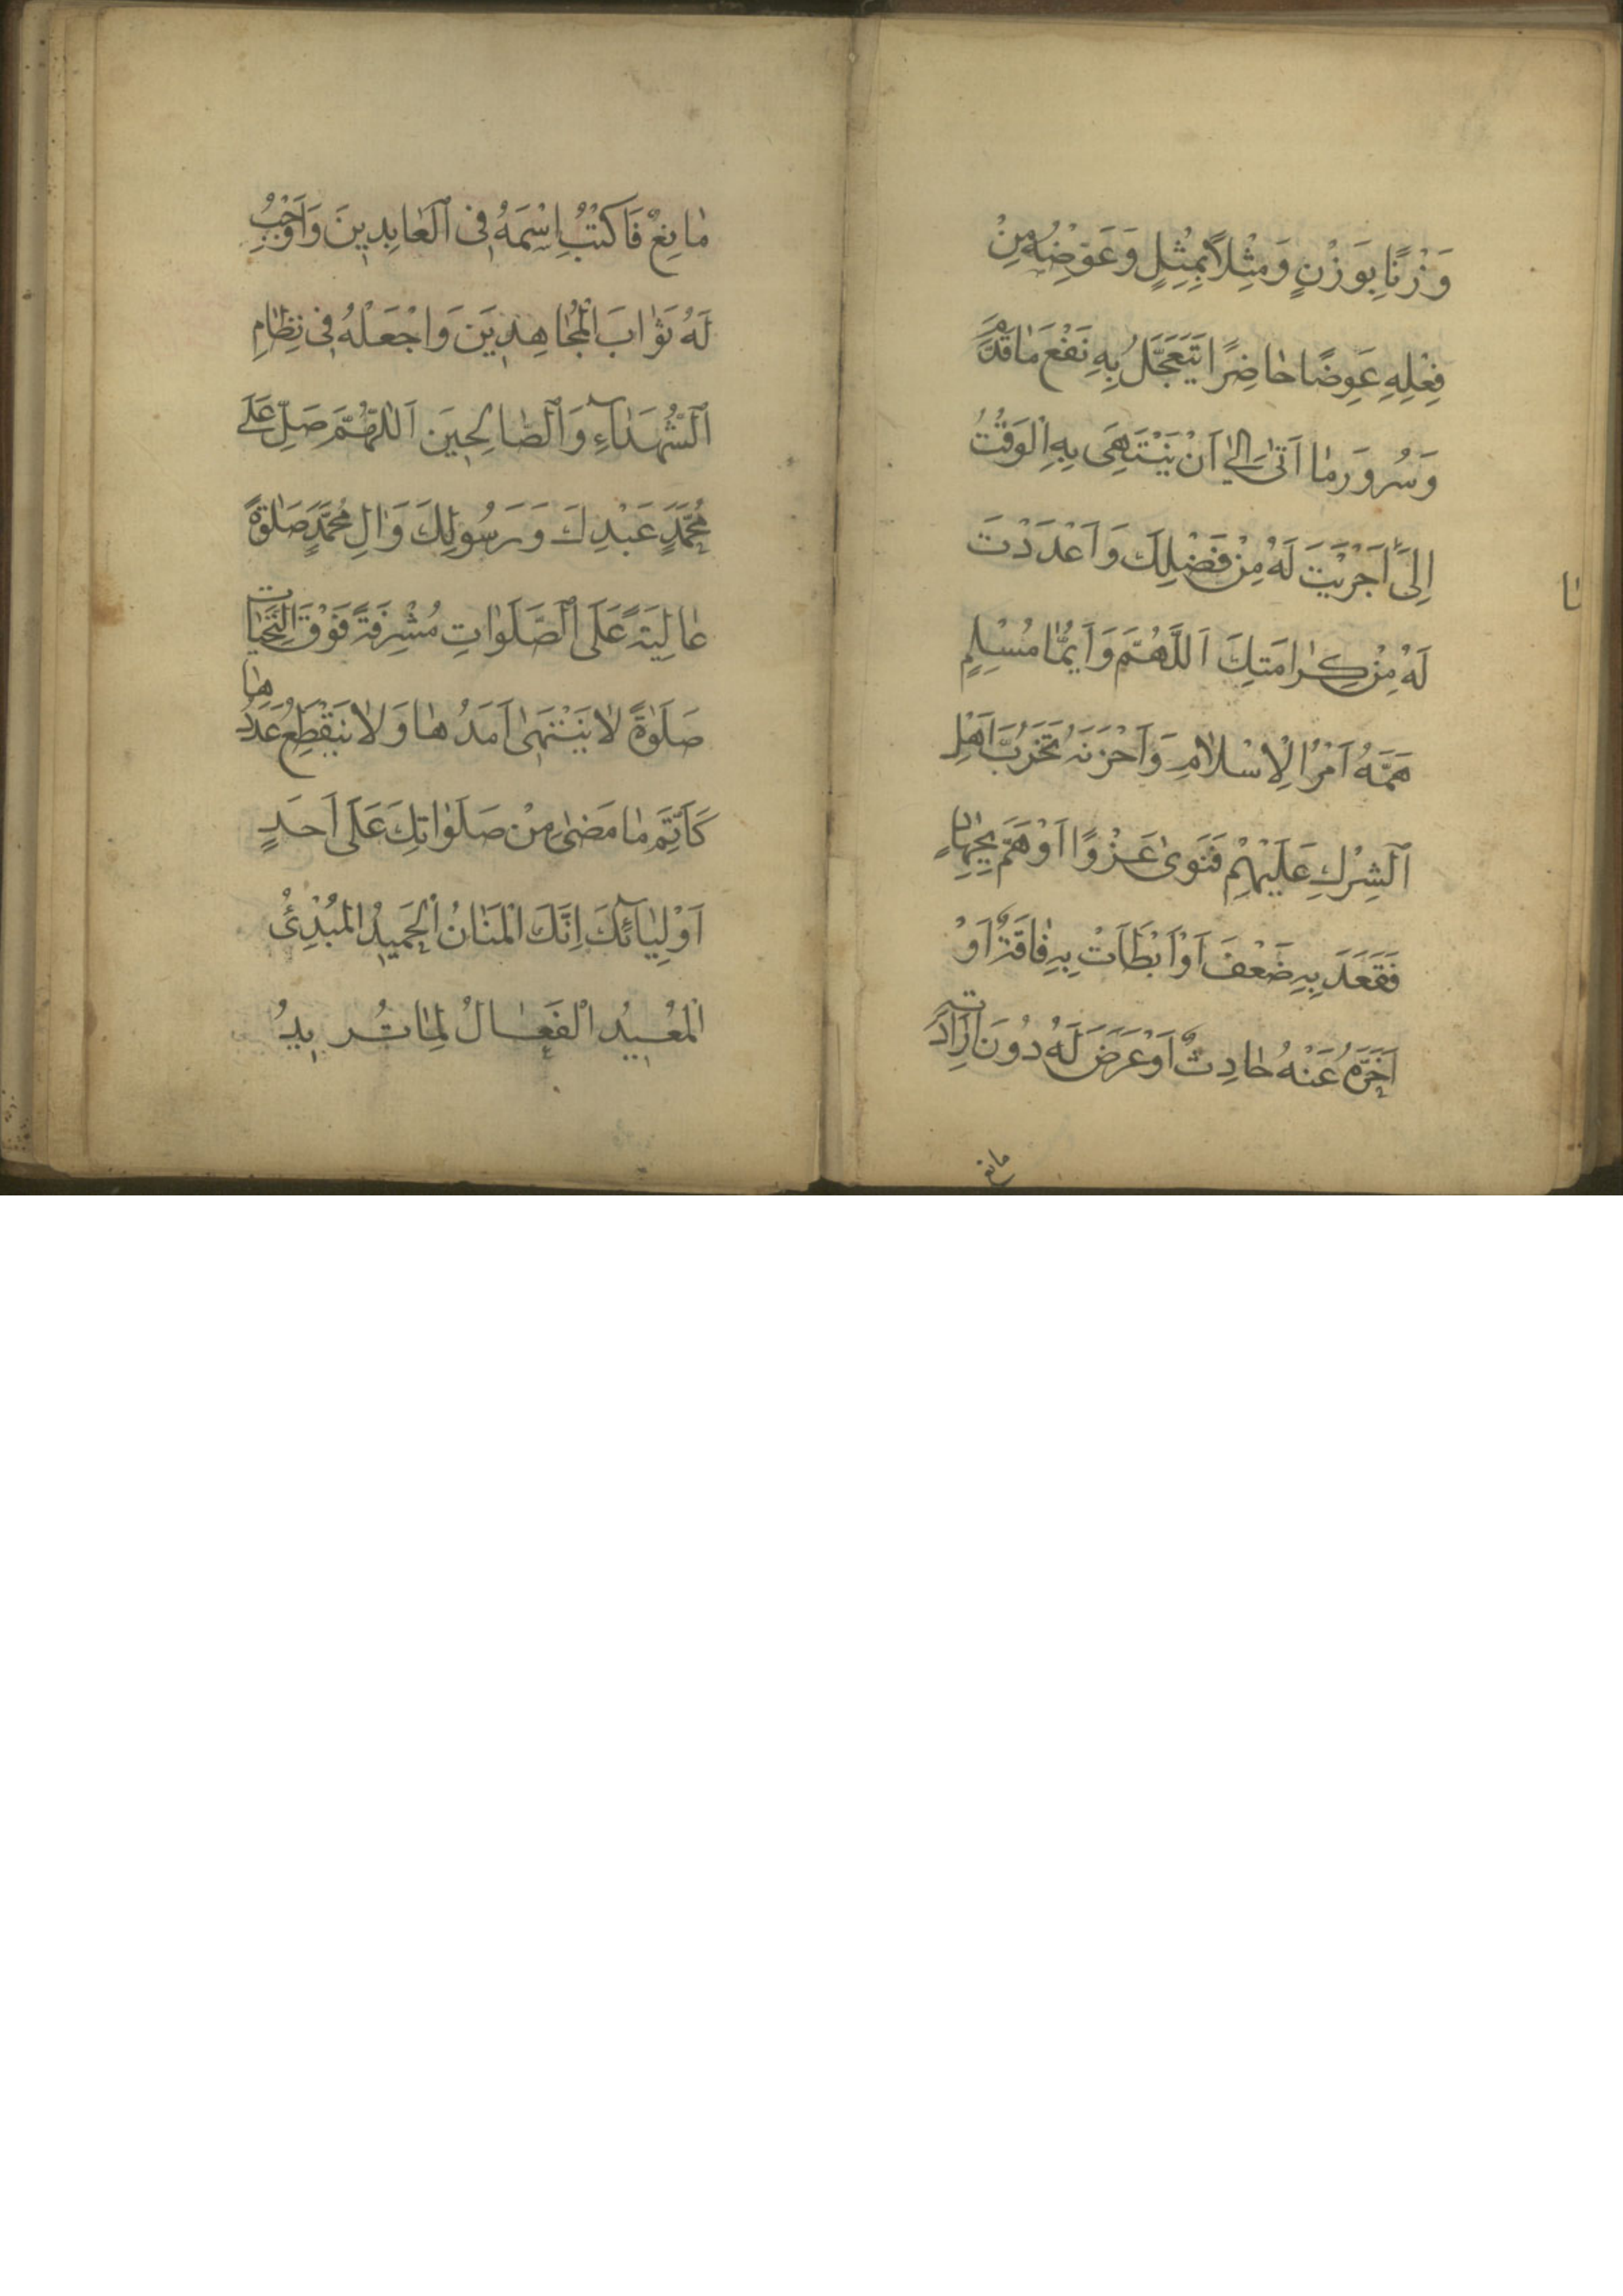 وَزْنًا بِوَزْنٍ وَمِثْلًا بِمِثْلٍ وَعَوِّضْهُ مِنْ
فِعْلِهِ عَوِضًا حَاضِرًا يَتَعَجَّلُ بِهِ نَفْعَ مَا قَدَّمَ
وَسُرُورَ مَا اَتَىٰ اِلىٰ اَنْ يَنْتَهِىَ بِهِ الْوَقْتُ
اِلىٰ مَا اَجْرَيْتَ لَهُ مِنْ فَضْلِكَ وَاَعْدَدْتَ
لَهُ مِنْ كَرَامَتِكَ اَللّٰهُمَّ وَاَيُّمَا مُسْلِمٍ
هَمَّهُ اَمْرُ الْاِسْلَامِ وَاَحْزَنَهُ تَحَزُّبُ اَهْلِ
اَلشِّرْكِ عَلَيْهِمْ فَنَوَىٰ غَزْوًا اَوْ هَمَّ بِجِهَادٍ
فَقَعَدَ بِهِ ضَعْفٌ اَوْ اَبْطَاَتْ بِهِ فَاقَةٌ اَوْ
اَخَّرَهُ عَنْهُ حَادِثٌ اَوْ عَرَضَ لَهُ دُونَ اِرَادَتِهِ
مانع
مَانِعٌ فَاكْتُبْ اِسْمَهُ فِى الْعَابِدِينَ وَاَوْجِبْ
لَهُ ثَوَابَ الْمُجَاهِدِينَ وَاجْعَلْهُ فِى نِظَامِ
اَلشُّهَدَآءِ وَالصَّالِحِينَ اَللّٰهُمَّ صَلِّ عَلَى
مُحَمَّدٍ عَبْدِكَ وَرَسُولِكَ وَاٰلِ مُحَمَّدٍ صَلٰوةً
عَالِيَةً عَلَى الصَّلَوَاتِ مُشْرِفَةً فَوْقَ التَّحِيَّاتِ
صَلٰوةً لَا يَنْتَهِى اَمَدُهَا وَلَا يَنْقَطِعُ عَدَدُهَا
كَاَتَمِّ مَا مَضىٰ مِنْ صَلَوَاتِكَ عَلَى اَحَدٍ
اَوْلِيَآئِكَ اِنَّكَ الْمَنَّانُ الْحَمِيدُ الْمُبْدِئُ
الْمُعِيدُ الْفَعَّالُ لِمَا تُرِيدُ